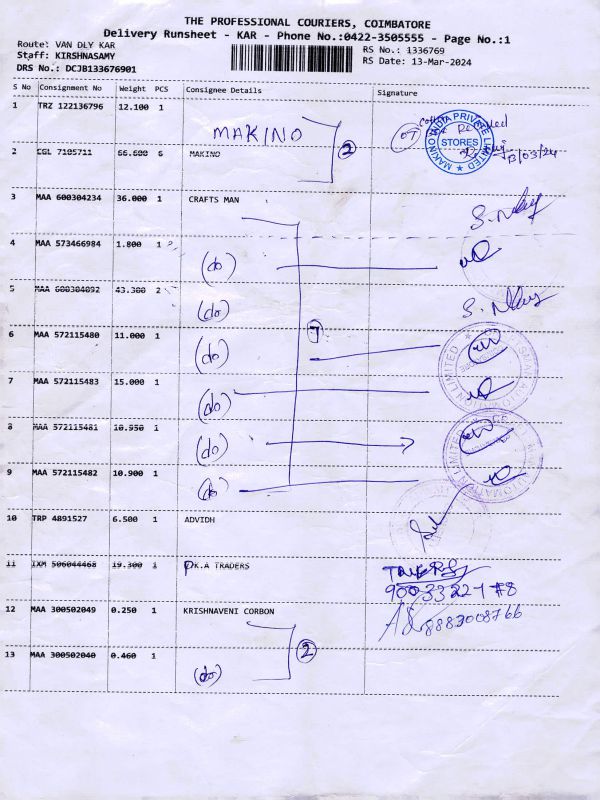 THE PROFESSIONAL COURIERS, COIMBATORE
Delivery Runsheet - KAR - Phone No.:0422-3505555 - Page No.:1
Route: VAN DLY KAR
Staff: KIRSHNASAMY
DRS No.: DCJB133676901
RS No.: 1336769
RS Date: 13-Mar-2024
S No Consignment No Weight PCS Consignee Details Signature
1 TRZ 122136796 12.100 1
MAKINO
2
MAKINO INDIA PRIVATE LIMITED
STORES
13/03/24
2 CGL 7105711 66.600 6 MAKINO
3 MAA 600304234 36.000 1 CRAFTS MAN
4 MAA 573466984 1.800 1 (do)
5 MAA 600304092 43.300 2 (do)
6 MAA 572115480 11.000 1 (do)
7
7 MAA 572115483 15.000 1 (do)
8 MAA 572115481 10.950 1 (do)
9 MAA 572115482 10.900 1 (do)
10 TRP 4891527 6.500 1 ADVIDH
11 IXM 506044468 19.300 1 P.K.A TRADERS
12 MAA 300502049 0.250 1 KRISHNAVENI CORBON
8883008766
2
13 MAA 300502040 0.460 1 (do)